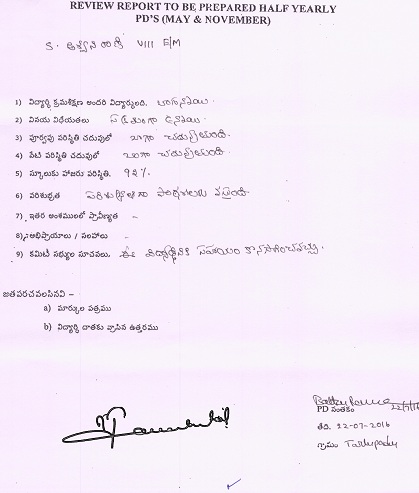 REVIEW REPORT TO BE PREPARED HALF YEARLY
PD'S (MAY & NOVEMBER)
VIII E/M
1) విద్యార్థి క్రమశిక్షణ అందరి విద్యార్థులది. బాగున్నాయి.
2) వినయ విధేయతలు
3) పూర్వపు పరిస్థితి చదువులో బాగా చదువుతుంది.
4) నేటి పరిస్థితి చదువులో బాగా చదువుతుంది.
5) స్కూలుకు హాజరు పరిస్థితి. 92%.
6) పరిశుభ్రత
7) ఇతర అంశములలో ప్రావీణ్యత -
8) అభిప్రాయాలు / సలహాలు -
9) కమిటీ సభ్యుల సూచనలు. ఈ విద్యార్థినికి సహాయం కొనసాగించవచ్చు.
జతపరచవలసినవి -
a) మార్కుల పత్రము
b) విద్యార్థి దాతకు వ్రాసిన ఉత్తరము
PD సంతకం
తేది. 22-07-2016
గ్రామం